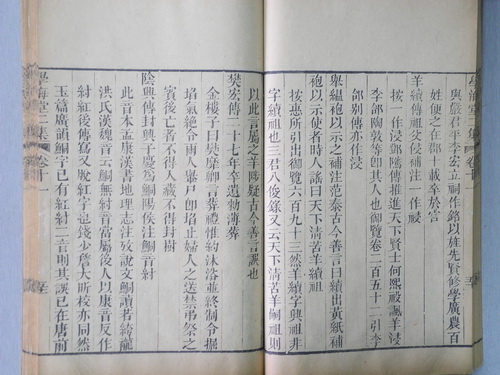 與嚴君平李宏立祠作銘以旌先賢修學廣農百
姓便之在郡十載卒於官
羊續傳補注一作祲
按一作浸郎陰傳推進天下賢士何熙祋諷羊浸
李郃陶敦等即其人也御覽卷二百五十二引李
郃別傳亦作浸
舉縕袍以示之補注范泰古今善言曰續出黃紙補
袍以示使者時人謠曰天下清苦羊續祖
按應所引也御覽六百九十三然羊續字興祖非
字續祖也三君八俊錄又云天下清苦羊嗣祖則
以此言屬之羊陟疑古今善言誤也
樊宏傳二十七年卒遺勅薄葬
金樓子曰樊摩卿言葬禮惟約沐浴並終制令掘
埳氣絕令兩人轝尸即埳止婦人之送禁弔祭之
賓後亡者不得人藏不得封樹
陰興傳封興子慶為鮦陽侯注鮦音紂
此音本孟康漢書地理志注攷說文鮦讀若絝襱
洪氏漢魏音云鮦無紂音當屬後人以康音反作
紂紅後傳寫又脫紅字也錢少詹大昕校亦同然
玉篇廣韻鮦字已有紅紂二音則其誤已在唐前
學海堂二集
卷十一